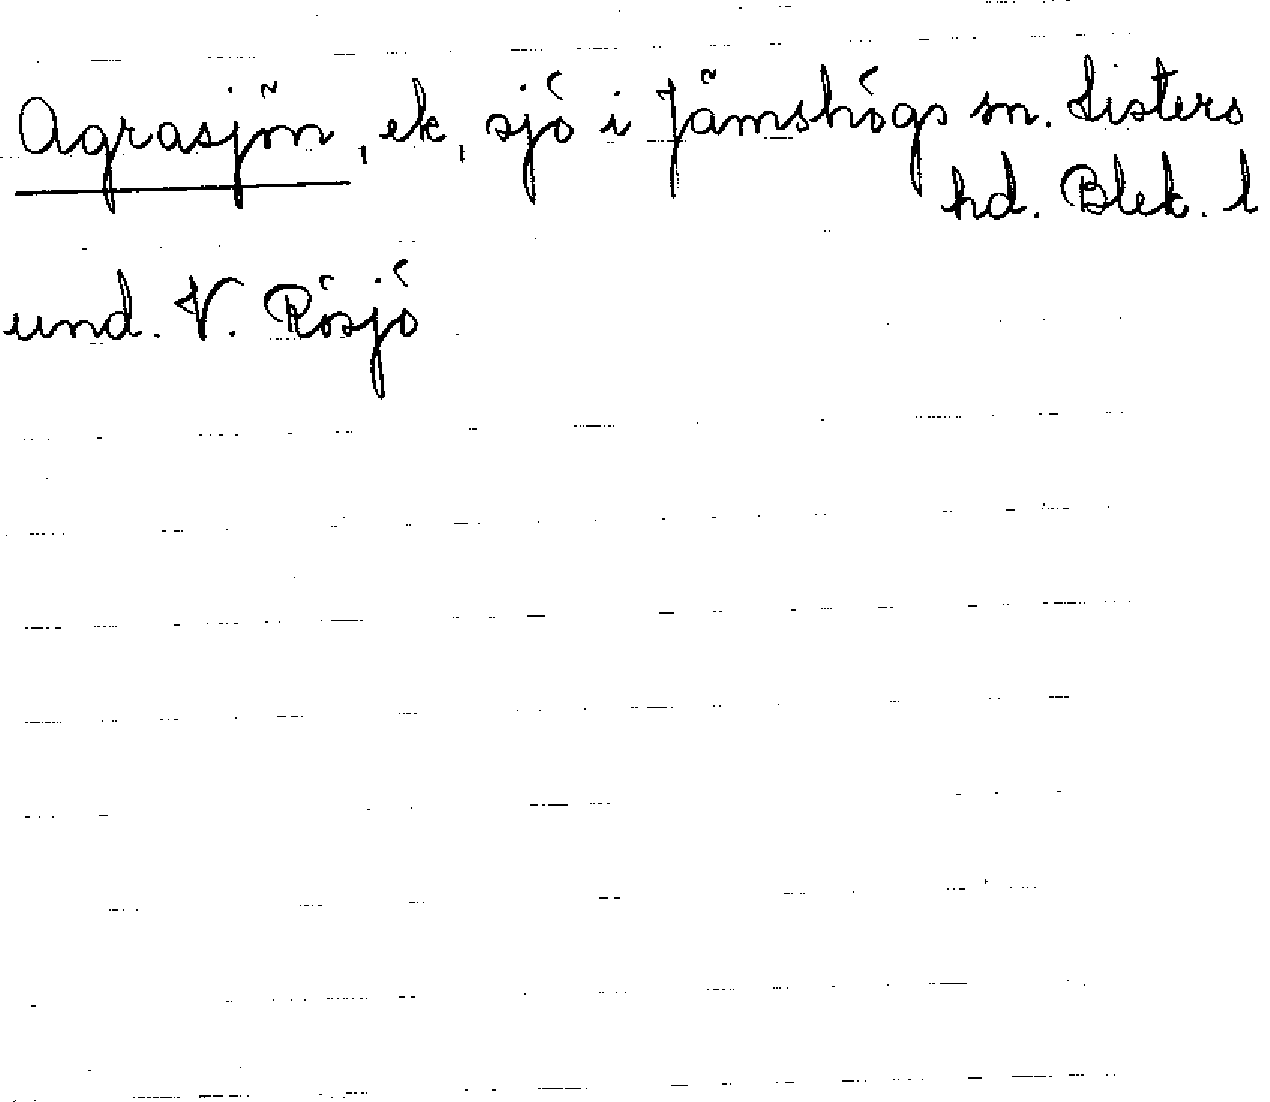 Agrasjön, ek, sjö i Jämshögs sn. Listers
hd. Blek. l
und. V. Rösjö